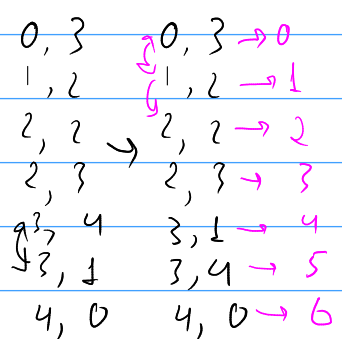 0, 3 0, 3 → 0
1, 2 1, 2 → 1
2, 2 → 2, 2 → 2
2, 3 2, 3 → 3
3, 4 3, 1 → 4
3, 1 3, 4 → 5
4, 0 4, 0 → 6